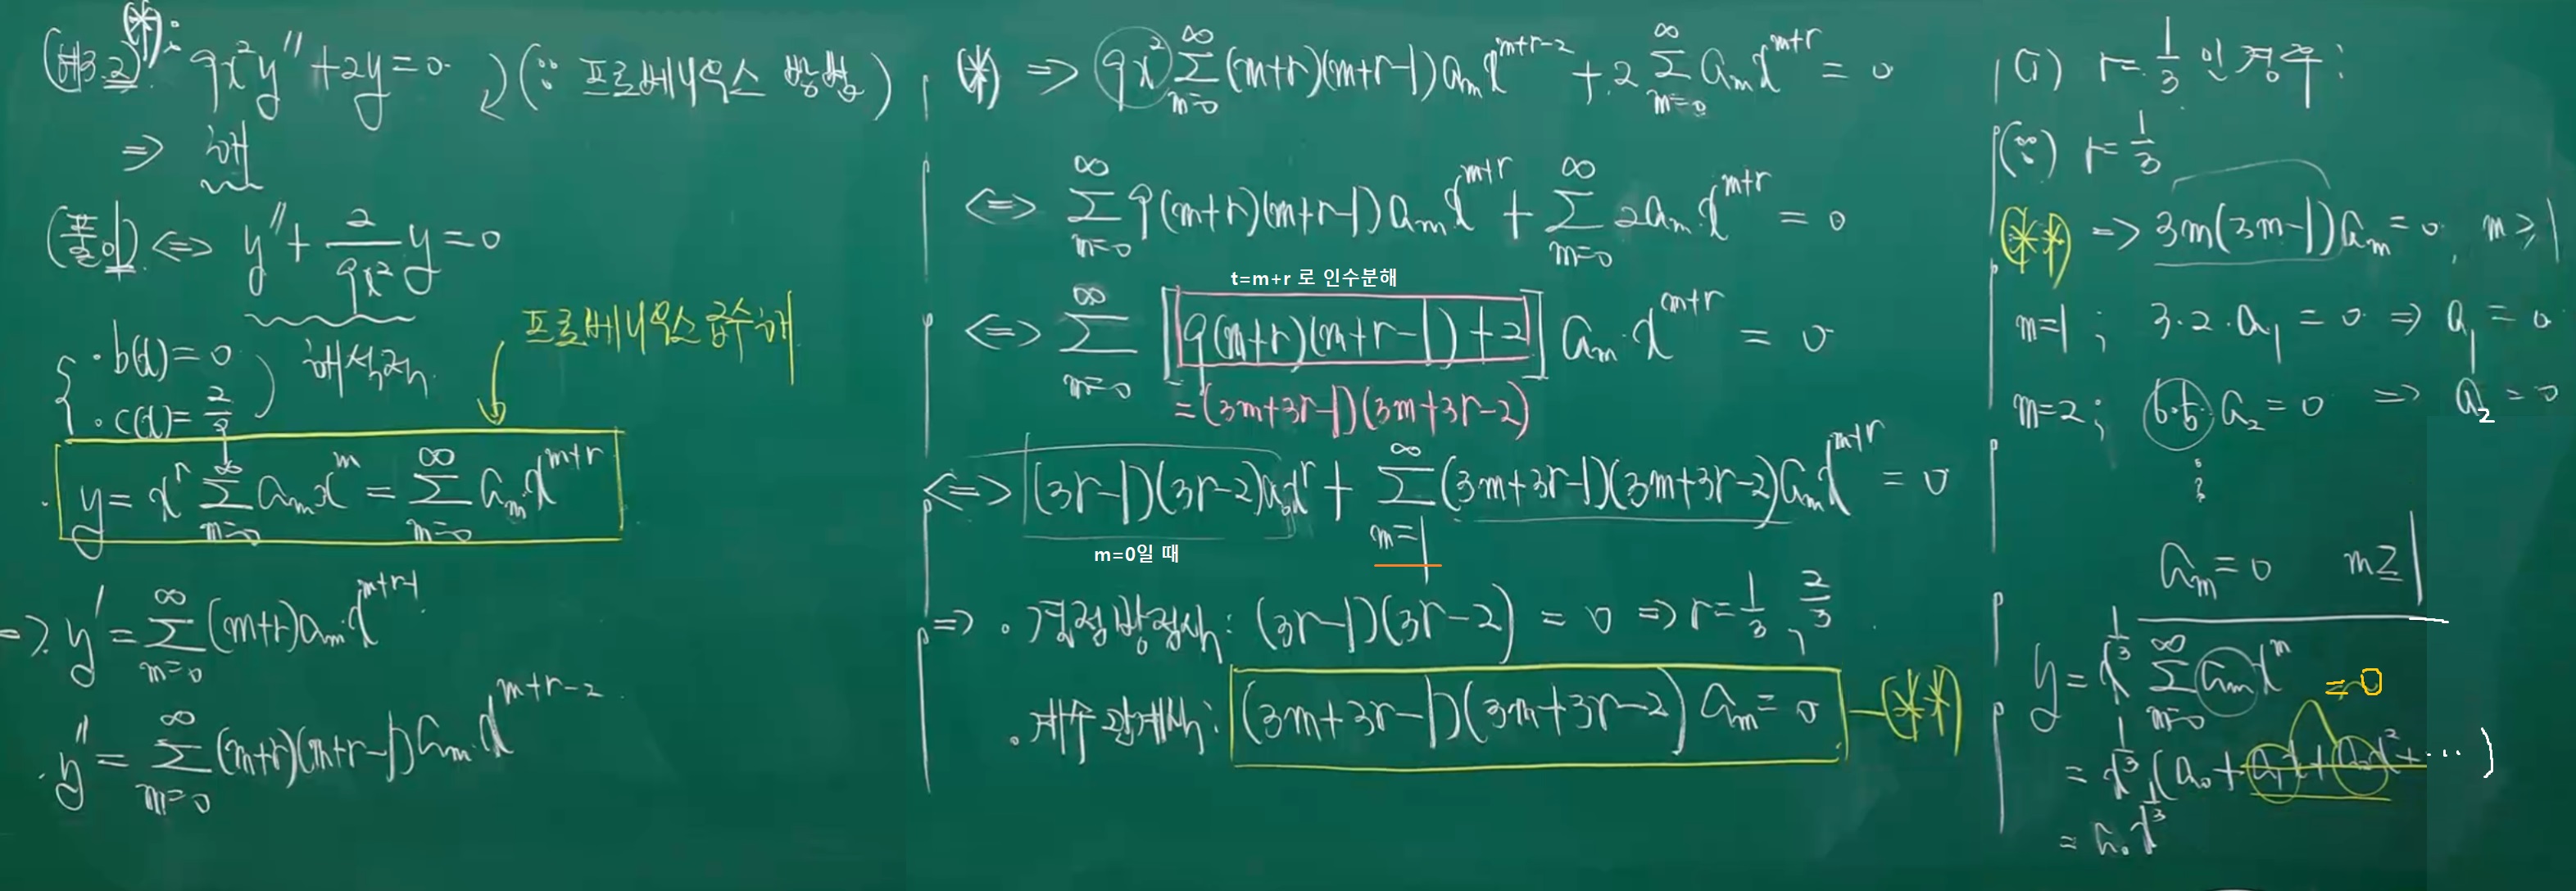 (예3.2) (*): 9x²y'' + 2y = 0 (∵ 프로베니우스 방법)
⇒ 해
(풀이) ⇔ y'' + 2/(9x²) y = 0
{ · b(x) = 0
· c(x) = 2/9 ) 해석적
프로베니우스 급수해
y = x^r ∑_{m=0}^{∞} a_m x^m = ∑_{m=0}^{∞} a_m x^{m+r}
⇒ y' = ∑_{m=0}^{∞} (m+r) a_m x^{m+r-1}
· y'' = ∑_{m=0}^{∞} (m+r)(m+r-1) a_m x^{m+r-2}
(*) ⇒ 9x² ∑_{m=0}^{∞} (m+r)(m+r-1) a_m x^{m+r-2} + 2 ∑_{m=0}^{∞} a_m x^{m+r} = 0
⇔ ∑_{m=0}^{∞} 9(m+r)(m+r-1) a_m x^{m+r} + ∑_{m=0}^{∞} 2a_m x^{m+r} = 0
t=m+r 로 인수분해
⇔ ∑_{m=0}^{∞} [9(m+r)(m+r-1) + 2] a_m x^{m+r} = 0
= (3m+3r-1)(3m+3r-2)
⇔ (3r-1)(3r-2)a_0 x^r + ∑_{m=1}^{∞} (3m+3r-1)(3m+3r-2) a_m x^{m+r} = 0
m=0일 때
⇒ · 결정방정식: (3r-1)(3r-2) = 0 ⇒ r = 1/3, 2/3
· 계수관계식: (3m+3r-1)(3m+3r-2) a_m = 0 — (**)
(i) r = 1/3 인 경우:
(∵) r = 1/3
(**) ⇒ 3m(3m-1) a_m = 0, m ≥ 1
m=1 ; 3·2·a_1 = 0 ⇒ a_1 = 0
m=2 ; 6·5·a_2 = 0 ⇒ a_2 = 0
⋮
a_m = 0 m ≥ 1
y = x^{1/3} ∑_{m=0}^{∞} a_m x^m
= 0
= x^{1/3} (a_0 + a_1 x + a_2 x² + ⋯ )
= a_0 x^{1/3}